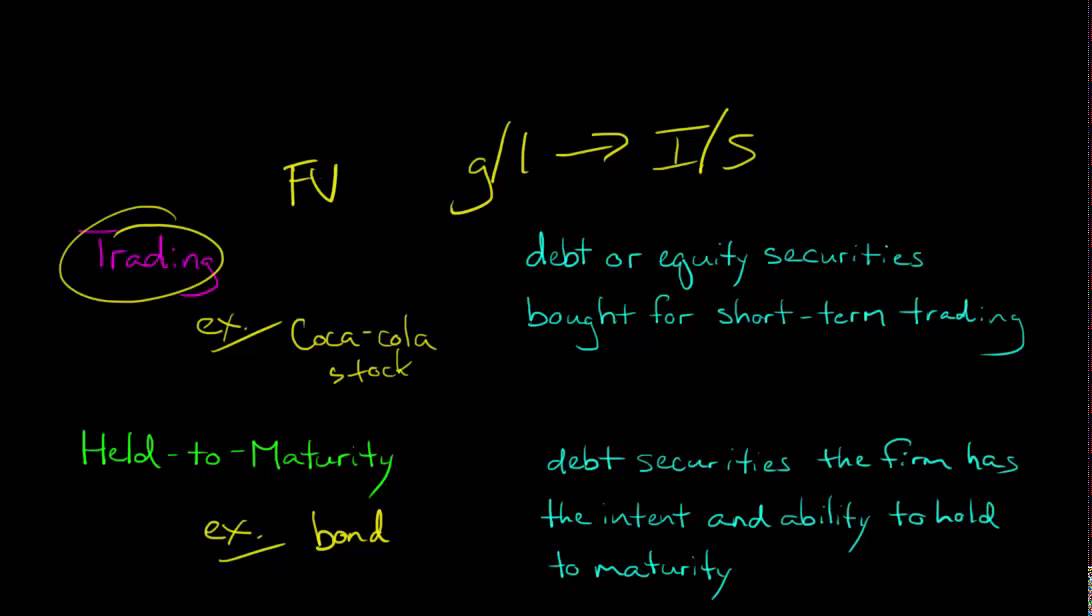 FV g/l → I/S
Trading
debt or equity securities
bought for short-term trading
ex. Coca-cola
stock
Held-to-Maturity
debt securities the firm has
the intent and ability to hold
to maturity
ex. bond